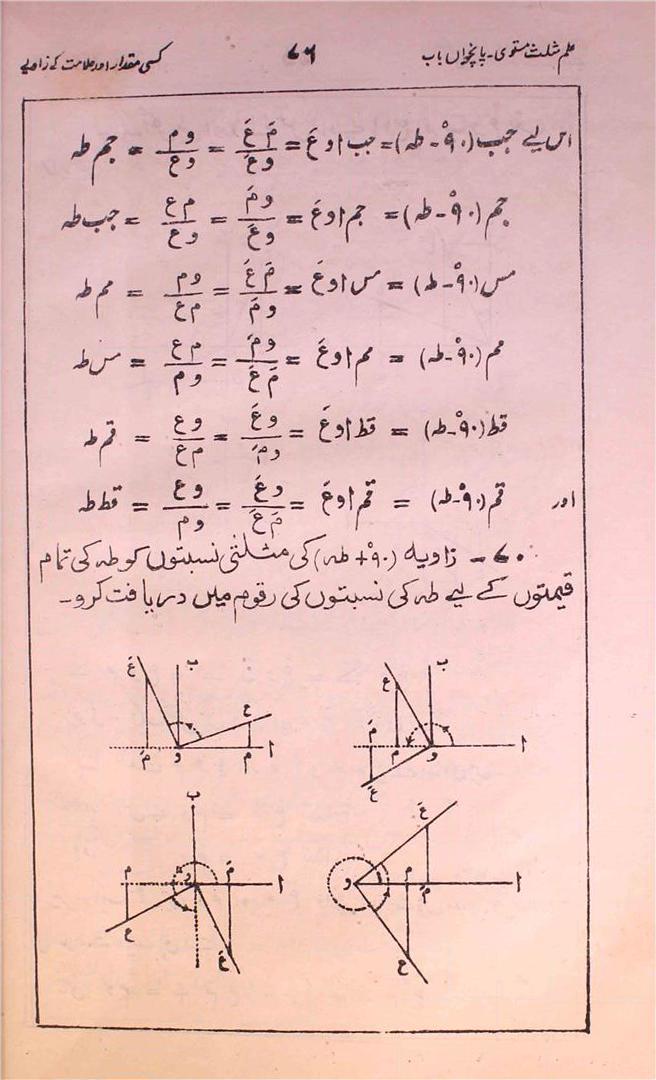 علم مثلث مستوی۔ پانچواں باب ۷۶ کسی مقدار اور علامت کے زاویے
اس لیے جب (۹۰° - طہ) = جب اوعَ = مَ عَ / وعَ = وم / وع = جم طہ
جم (۹۰° - طہ) = جم اوعَ = ومَ / وعَ = م ع / وع = جب طہ
مس (۹۰° - طہ) = مس اوعَ = مَ عَ / ومَ = وم / م ع = مم طہ
مم (۹۰° - طہ) = مم اوعَ = ومَ / مَ عَ = م ع / وم = مس طہ
قط (۹۰° - طہ) = قط اوعَ = وعَ / ومَ = وع / م ع = قم طہ
اور قم (۹۰° - طہ) = قم اوعَ = وعَ / مَ عَ = وع / وم = قط طہ
۷۰۔ زاویہ (۹۰° + طہ) کی مثلثی نسبتوں کو طہ کی تمام
قیمتوں کے لیے طہ کی نسبتوں کی رقوم میں دریافت کرو۔
ب ع مَ م و ا عَ
ب عَ ع مَ و م ا
عَ و م مَ ا ع
ب م و مَ ا ع عَ